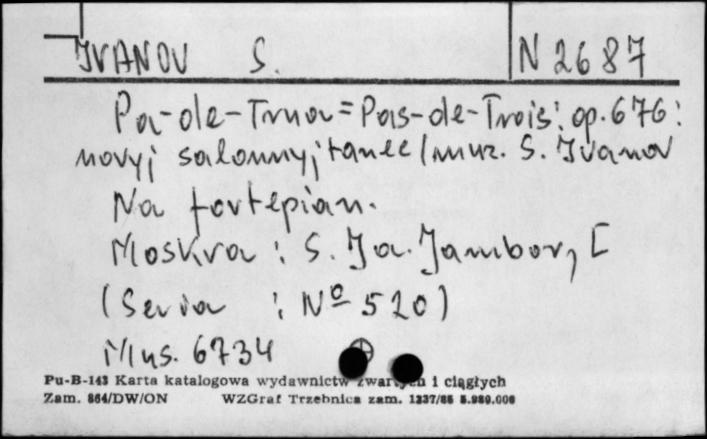 IVANOV S. N 2687
Pa-de-Trua = Pas-de-Trois : op. 676 :
novyj salonnyj tanec / muz. S. Ivanov
Na fortepian.
Moskva : S. Ja. Jambor, [
(Seria : Nº 520)
Mus. 6734
Pu-B-143 Karta katalogowa wydawnictw zwartych i ciągłych
Zam. 864/DW/ON WZGraf Trzebnica zam. 1337/85 5.980.000